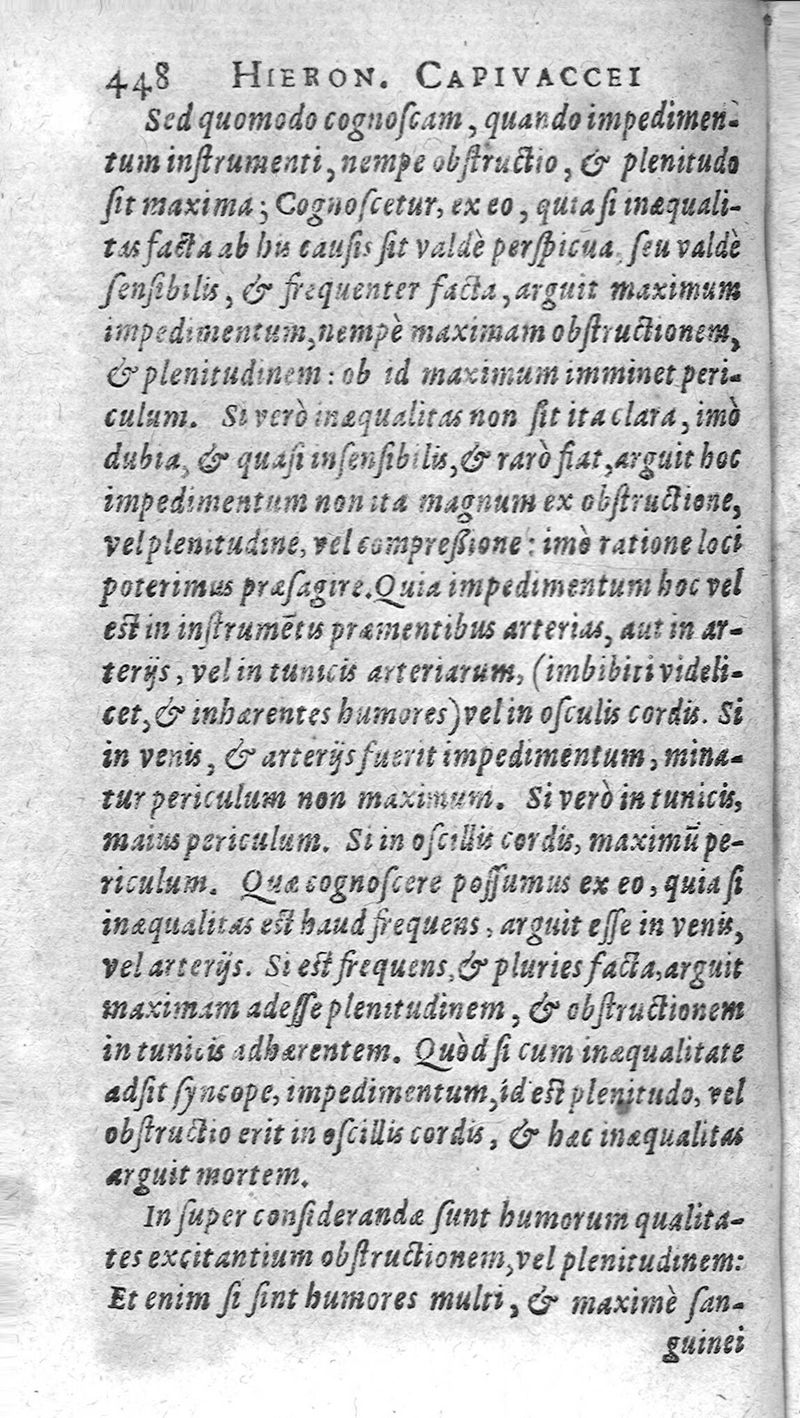 448 HIERON. CAPIVACCEI
Sed quomodo cognoſcam, quando impedimen-
tum inſtrumenti, nempe obſtructio, & plenitudo
ſit maxima; Cognoſcetur, ex eo, quia ſi inæquali-
tas facta ab his cauſis ſit valdè perſpicua, ſeu valdè
ſenſibilis, & frequenter facta, arguit maximum
impedimentum, nempè maximam obſtructionem,
& plenitudinem: ob id maximum imminet peri-
culum. Si verò inæqualitas non ſit ita clara, imò
dubia, & quaſi inſenſibilis, & rarò fiat, arguit hoc
impedimentum non ita magnum ex obſtructione,
vel plenitudine, vel compreſſione: imò ratione loci
poterimus præſagire. Quia impedimentum hoc vel
eſt in inſtrumētis præmentibus arterias, aut in ar-
terijs, vel in tunicis arteriarum, (imbibiti videli-
cet, & inhærentes humores) vel in oſculis cordis. Si
in venis, & arterijs fuerit impedimentum, mina-
tur periculum non maximum. Si verò in tunicis,
maius periculum. Si in oſcillis cordis, maximū pe-
riculum. Quæ cognoſcere poſſumus ex eo, quia ſi
inæqualitas eſt haud frequens, arguit eſſe in venis,
vel arterijs. Si eſt frequens, & pluries facta, arguit
maximam adeſſe plenitudinem, & obſtructionem
in tunicis adhærentem. Quòd ſi cum inæqualitate
adſit ſyncope, impedimentum, id eſt plenitudo, vel
obſtructio erit in oſcillis cordis, & hæc inæqualitas
arguit mortem.
In ſuper conſiderandæ ſunt humorum qualita-
tes excitantium obſtructionem, vel plenitudinem:
Et enim ſi ſint humores multi, & maximè ſan-
guinei